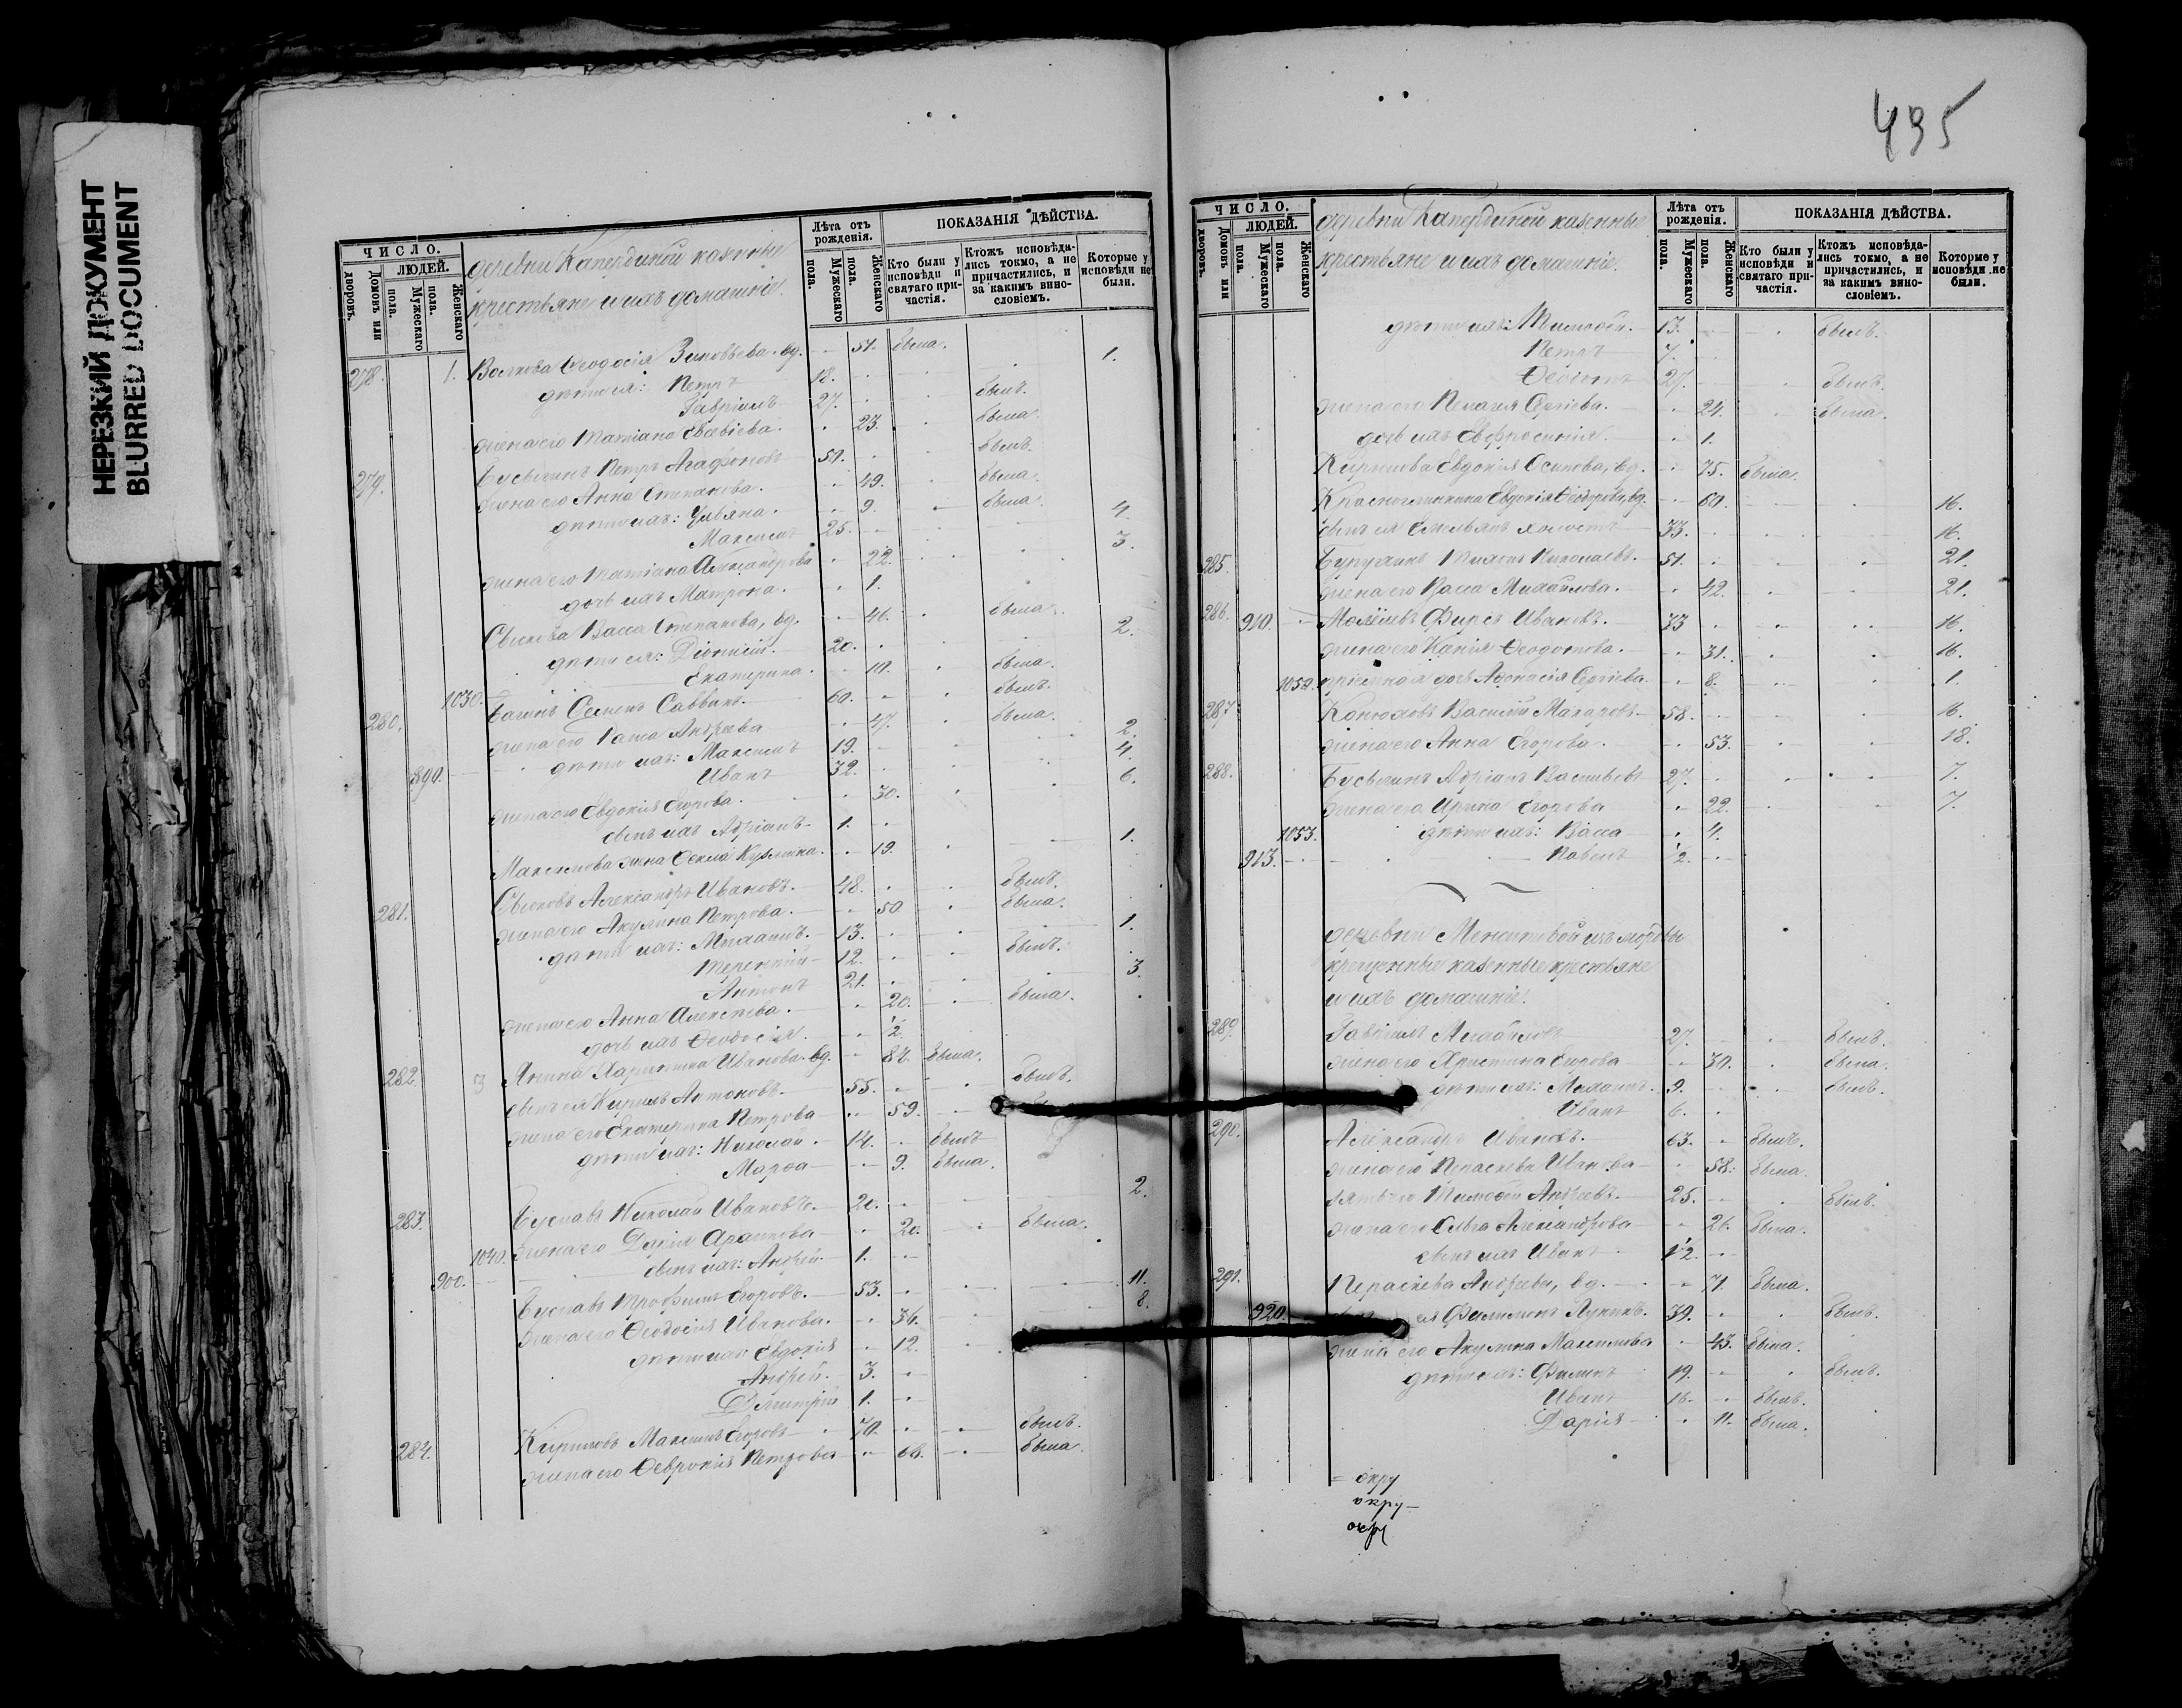 НЕРЕЗКИЙ ДОКУМЕНТ
BLURRED DOCUMENT
ЧИСЛО.
ЛЮДЕЙ.
Домовъ или дворовъ.
Мужескаго пола.
Женскаго пола.
деревни Капердиной казенные
крестьяне и ихъ домашніе.
Лѣта отъ рожденія.
Мужескаго пола.
Женскаго пола.
ПОКАЗАНІЯ ДѢЙСТВА.
Кто были у исповѣди и святаго причастія.
Ктожъ исповѣдались токмо, а не причастились, и за какимъ винословіемъ.
Которые у исповѣди не были.
278. 1. Волкова Ѳеодосія Зиновьева. вд. 51. была.
дѣти ея: Петръ 18. 1.
Гавріилъ 27. былъ.
жена его Татіана Евсевіева. 23. была.
279. Бусыгинъ Петръ Агафоновъ 51. былъ.
жена его Анна Степанова. 49. была.
дѣти ихъ: Ульяна. 9. была.
Максимъ 25. 4.
жена его Татіана Александрова 22. 3.
дочь ихъ Матрона. 1.
Васса Степанова, вд. 46. была.
дѣти ея: Діонисій. 20. 2.
Екатерина. была.
1030. 280. Семенъ Саввинъ. 60. былъ.
жена его Андреева 47. была.
890. дѣти ихъ: Максимъ 19. 2.
Иванъ 32. 4.
жена его Евдокія Егорова. 30. 6.
сынъ ихъ Адріанъ 1.
Максимова жена Ѳекла Кузьмина. 19. 1.
281. Александръ Ивановъ. 48. былъ.
жена его Акулина Петрова. 50 была.
дѣти ихъ: Михаилъ. 13. 1.
Терентій 12. былъ.
Антонъ 21. 3.
жена его Анна Алексѣева. 20. была.
дочь ихъ Ѳеодосія. ½
282. Янина Харитина Иванова. вд. 82. была.
сынъ ея Кириллъ Антоновъ. 55. былъ.
жена его Екатерина Петрова 59.
дѣти ихъ: Николай. 14. былъ
Марѳа 9. была.
283. Буслаевъ Николай Ивановъ. 20. 2.
жена его Дарія 20. была.
1040. 900. сынъ ихъ: Андрей 1.
Трофимъ Егоровъ. 53. 11.
жена его Ѳеодосія Иванова. 34. 8.
дѣти ихъ: Евдокія 12.
Андрей. 3.
Димитрій 1.
284. Кириловъ Максимъ Егоровъ 70. былъ.
жена его Ѳевронія Петрова 68. была.
495
ЧИСЛО.
ЛЮДЕЙ.
Домовъ или дворовъ.
Мужескаго пола.
Женскаго пола.
деревни Капердиной казенные
крестьяне и ихъ домашніе.
Лѣта отъ рожденія.
Мужескаго пола.
Женскаго пола.
ПОКАЗАНІЯ ДѢЙСТВА.
Кто были у исповѣди и святаго причастія.
Ктожъ исповѣдались токмо, а не причастились, и за какимъ винословіемъ.
Которые у исповѣди не были.
дѣти ихъ: Тимоѳей. 13. былъ.
Петръ 7.
Ѳедотъ 27. былъ.
жена его Пелагея Сергіева. 24. была.
дочь ихъ Евфросинія. 1.
Кирилова Евдокія Осипова, вд. 75. была.
Красноглинкина Евдокія Ѳедорова, вд. 60. 16.
сынъ ея Емельянъ холостъ 33. 16.
285. Николаевъ. 51. 21.
жена его Васса Михайлова. 42. 21.
286. 910. Фирсъ Ивановъ. 33 16.
жена его Ксенія Ѳеодотова. 31. 16.
1050. пріемная дочь Аѳанасія Сергіева 8. 1.
287. Конюховъ Василій Макаровъ 58. 16.
жена его Анна Егорова. 53. 18.
288. Бусыгинъ Адріанъ Васильевъ 27. 7.
жена его Ирина Егорова 22. 7.
1053. дѣти ихъ: Васса 4.
913. Павелъ ½.
деревни Менситовой изъ мордвы
крещенные казенные крестьяне
и ихъ домашніе.
289. Гавріилъ Михайловъ 27. былъ.
жена его Христина Егорова 30. была.
дѣти ихъ: Михаилъ. 9. былъ.
Иванъ 6.
290. Александръ Ивановъ. 63. былъ.
жена его Параскева Иванова 58. была.
зять его Тимоѳей Андреевъ. 25. былъ.
жена его Ольга Александрова 26. была.
сынъ ихъ Иванъ ½.
291. Параскева Андреева, вд. 71. была.
920. ея Филимонъ Лукинъ. 39. былъ.
жена его Акулина Максимова 43. была.
дѣти ихъ: Филипъ 19. былъ.
Иванъ 16. былъ.
Дарія 11. была.
окру
окру
окру